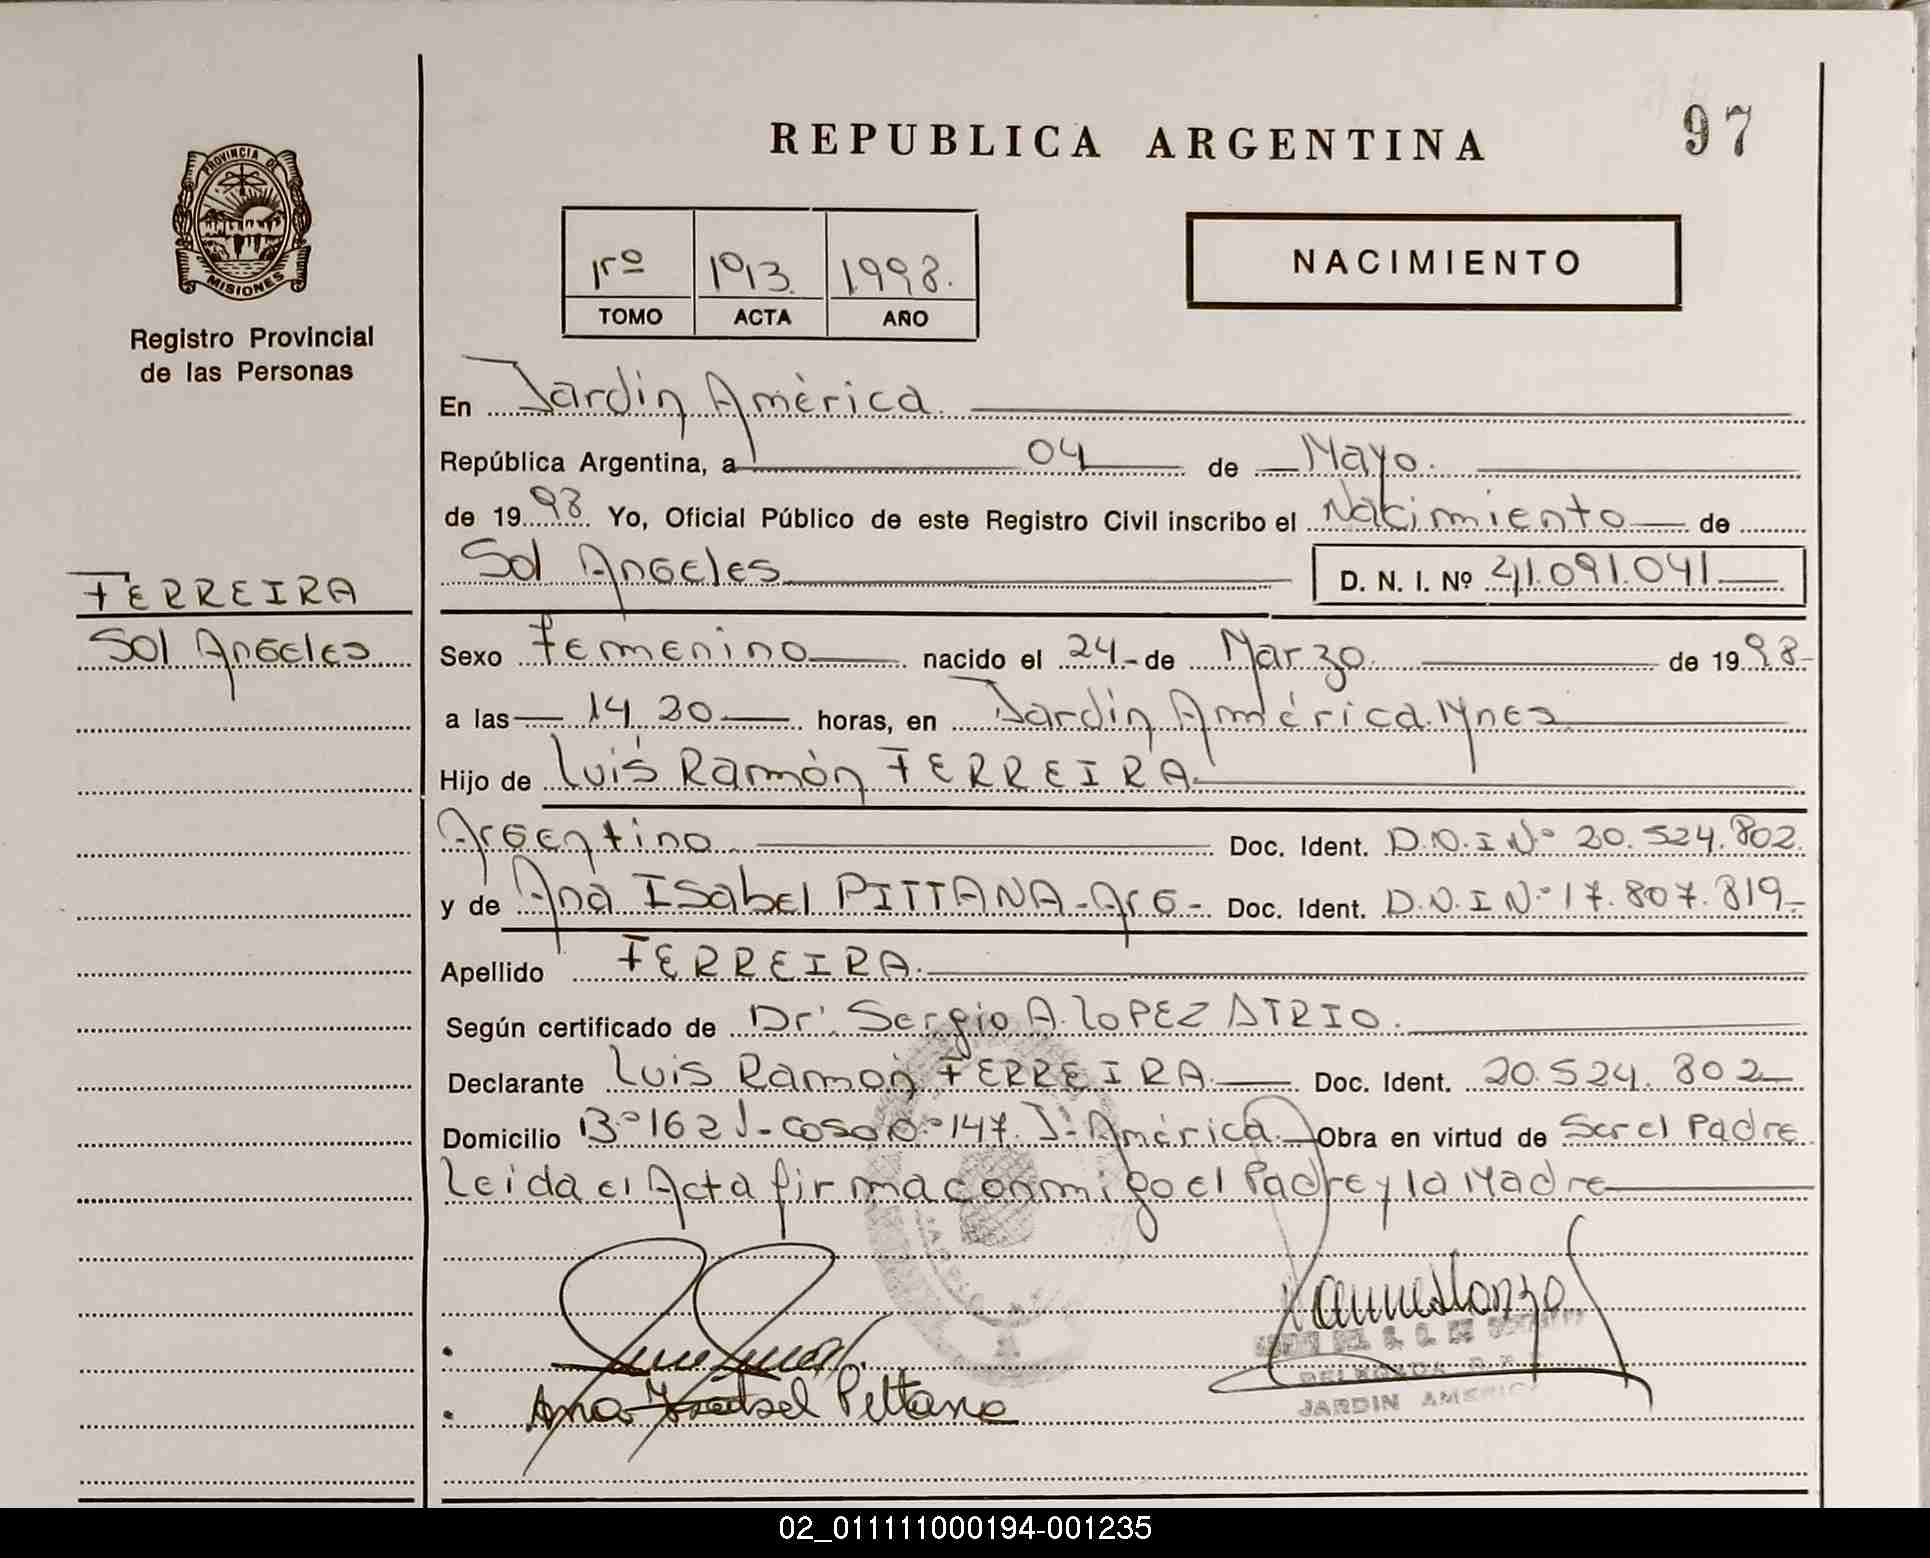 REPUBLICA ARGENTINA
97
PROVINCIA DE
MISIONES
Registro Provincial
de las Personas
1rº 193. 1998.
TOMO ACTA AÑO
NACIMIENTO
En Jardin América.
República Argentina, a 04 de Mayo.
de 1998. Yo, Oficial Público de este Registro Civil inscribo el Nacimiento de
Sol Angeles D. N. I. Nº 41.091.041
FERREIRA
Sol Angeles
Sexo Femenino nacido el 24 - de Marzo. de 1998-
a las 14 20 horas, en Jardin América. Mnes
Hijo de Luis Ramón FERREIRA
Argentino Doc. Ident. D.N.I Nº 20.524.802.
y de Ana ISabel PITTANA - Arg - Doc. Ident. D.N.I Nº 17.807.819-
Apellido FERREIRA.
Según certificado de Dr. Sergio A. LOPEZ ATRIO.
Declarante Luis Ramon FERREIRA Doc. Ident. 20.524.802
Domicilio Bº 162 J- casa Nº 147. Jº América. Obra en virtud de Ser el Padre
Leida el Acta firma conmigo el Padre y la Madre
Ana Isabel Pittana
DELEGADA
JARDIN AMERICA
02_011111000194-001235